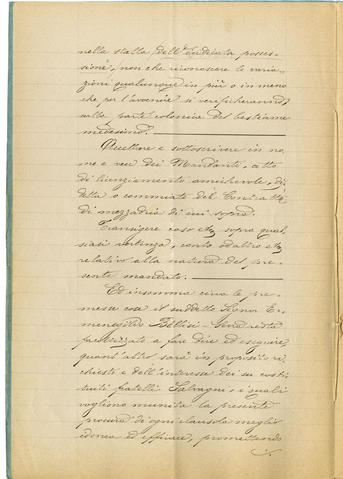 nella stalla dell'indicata posses-
sione, non che riconoscere le varia-
zioni qualunque in più o in meno
che per l'avvenire si verificheranno
nella parte colonica del bestiame
medesimo.
Accettare e sottoscrivere in no-
me e vece dei Mandanti, atto
di licenziamento amichevole, di-
detta o commiato del Contratto
di mezzadria di cui sopra.
Transigere caso etc. sopra qual-
siasi vertenza, conto od altro etc.
relativo alla natura del pre-
sente mandato.
Ed insomma circa le pre-
messe cose il suddetto Signor Er-
menegildo Bellisi - resta
facoltizzato a fare dire ed eseguire
quant'altro sarà in proposito ri-
chiesto e dell'interesse dei su costi-
tuiti fratelli Salvagni i quali
vogliono munita la presente
procura di ogni clausola meglio
idonea ed efficace, promettendo